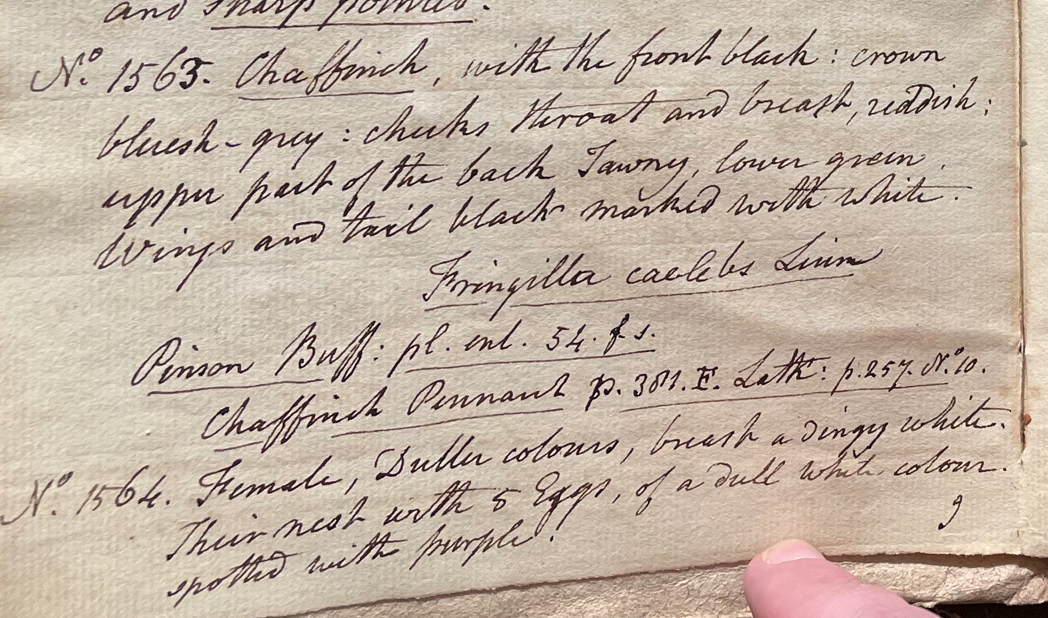 and sharp pointed.
No. 1563. Chaffinch, with the front black: crown
bluesh-grey: cheeks throat and breast, reddish:
upper part of the back Tawny, lower green.
Wings and tail black marked with white.
Fringilla caelebs Linn
Pinson Buff: pl. enl. 54. f 1.
Chaffinch Pennant p. 381. F. Lath: p. 257. No. 10.
No. 1564. Female, Duller colours, breast a dingy white.
Their nest with 5 Eggs, of a dull white colour.
spotted with purple.